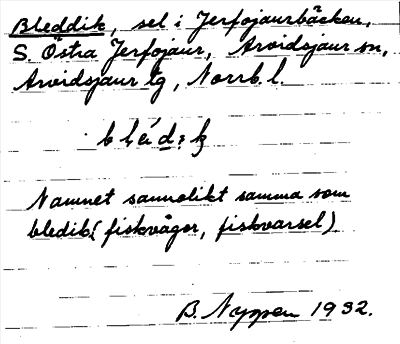 Bleddik, sel i Jerfojaurbäcken,
S. Östra Jerfojaur, Arvidsjaur sn,
Arvidsjaur tg, Norrb. l.
Namnet sannolikt samma som
bledik (fiskvåger, fiskvarsel)
B. Nyssen 1932.